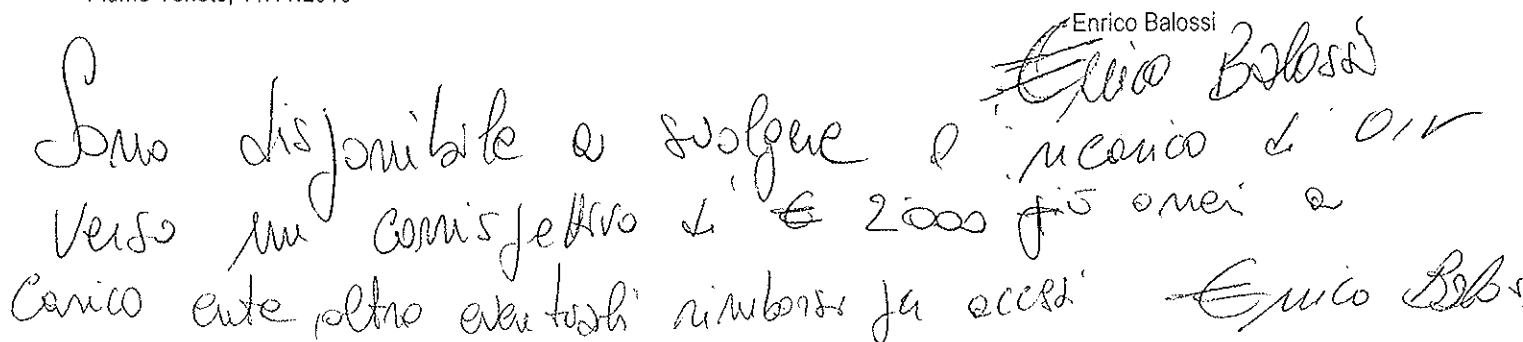 Enrico Balossi
Enrico Balossi
Sono disponibile a svolgere l'incarico di OIV
verso un corrispettivo di € 2000 più oneri a
carico ente oltre eventuali rimborsi per accessi Enrico Balos